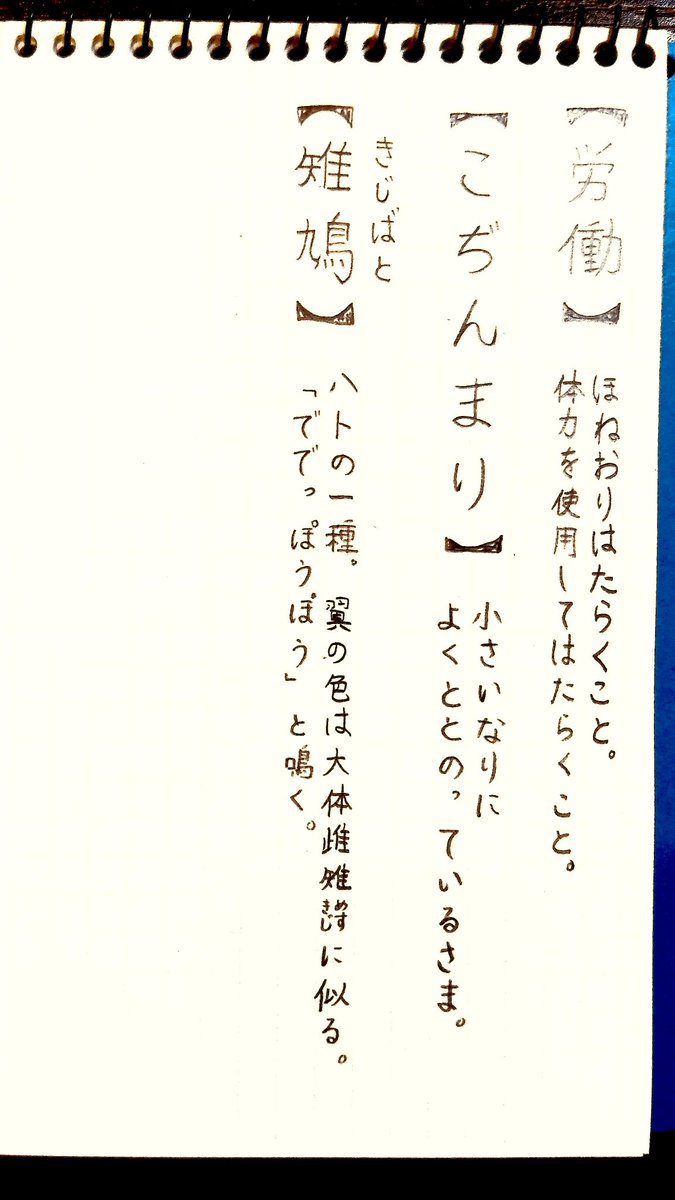 【労働】
ほねおりはたらくこと。
体力を使用してはたらくこと。
【こぢんまり】
小さいなりに
よくととのっているさま。
きじばと
【雉鳩】
ハトの一種。翼の色は大体雌雉めすきじに似る。
「ででっぽうぽう」と鳴く。